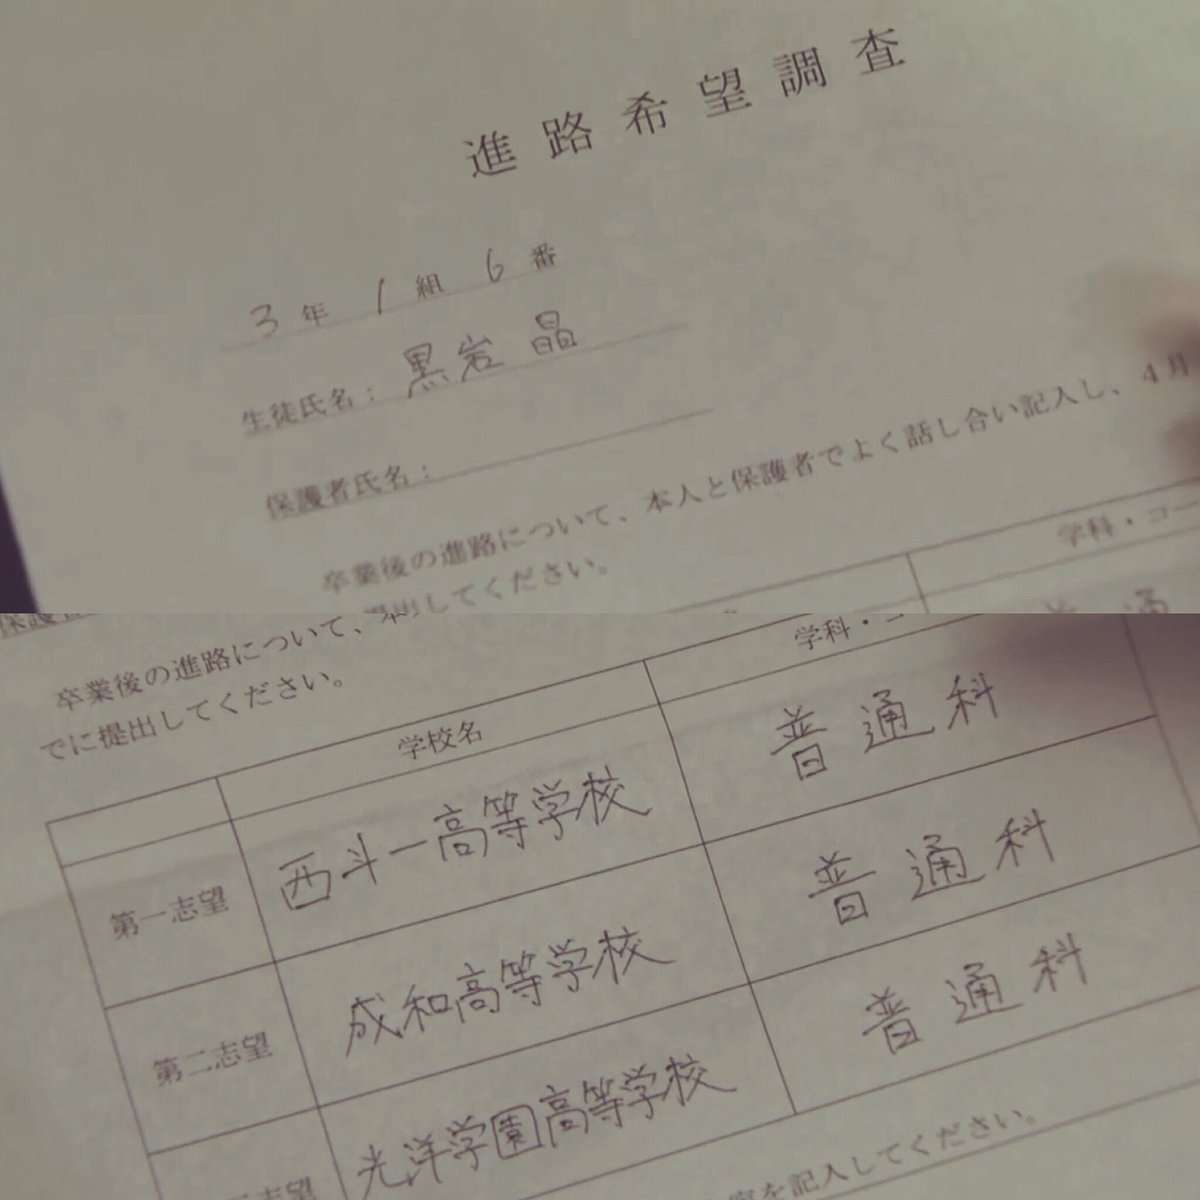 進路希望調査
3年1組6番
生徒氏名：黒岩 晶
保護者氏名：
卒業後の進路について、本人と保護者でよく話し合い記入し、4月
提出してください。
学科・コー
普通
保護者
卒業後の進路について、
でに提出してください。
学校名 学科・コー
第一志望 西斗一高等学校 普通科
第二志望 成和高等学校 普通科
志望 光洋学園高等学校 普通科
を記入してください。